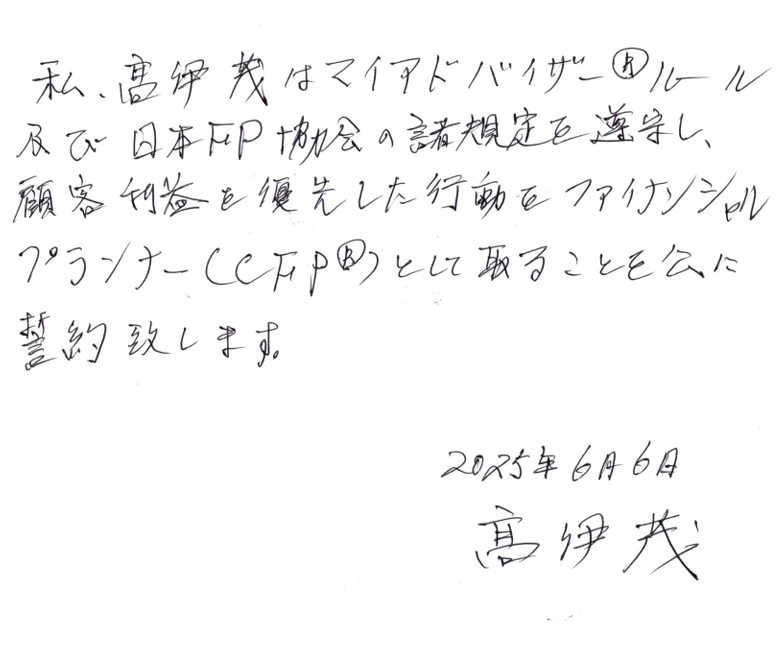 私、髙伊茂はマイアドバイザー®ルール
及び日本FP協会の諸規定を遵守し、
顧客利益を優先した行動をファイナンシャル
プランナー(CFP®)として取ることを公に
誓約致します。
2025年6月6日
髙伊茂